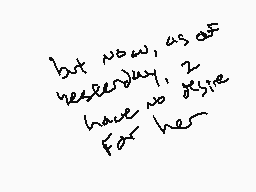 but now, as of
yesterday, I
have no desire
for her